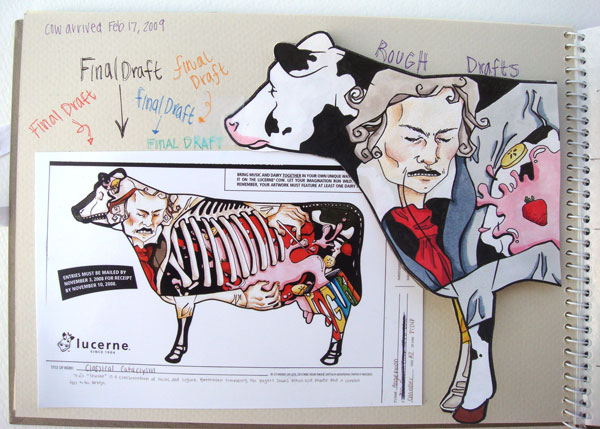 cow arrived Feb. 17, 2009
ROUGH Drafts
Final Draft
final Draft
Final Draft
Final Draft
FINAL DRAFT
BRING MUSIC AND DAIRY TOGETHER IN YOUR OWN UNIQUE
IT ON THE LUCERNE COW. LET YOUR IMAGINATION RUN
REMEMBER, YOUR ARTWORK MUST FEATURE AT LEAST ONE DAIRY
ENTRIES MUST BE MAILED BY
NOVEMBER 3, 2008 FOR RECEIPT
BY NOVEMBER 10, 2008.
YOGURT
lucerne
SINCE 1904
TITLE OF WORK: Classical Cataclysm